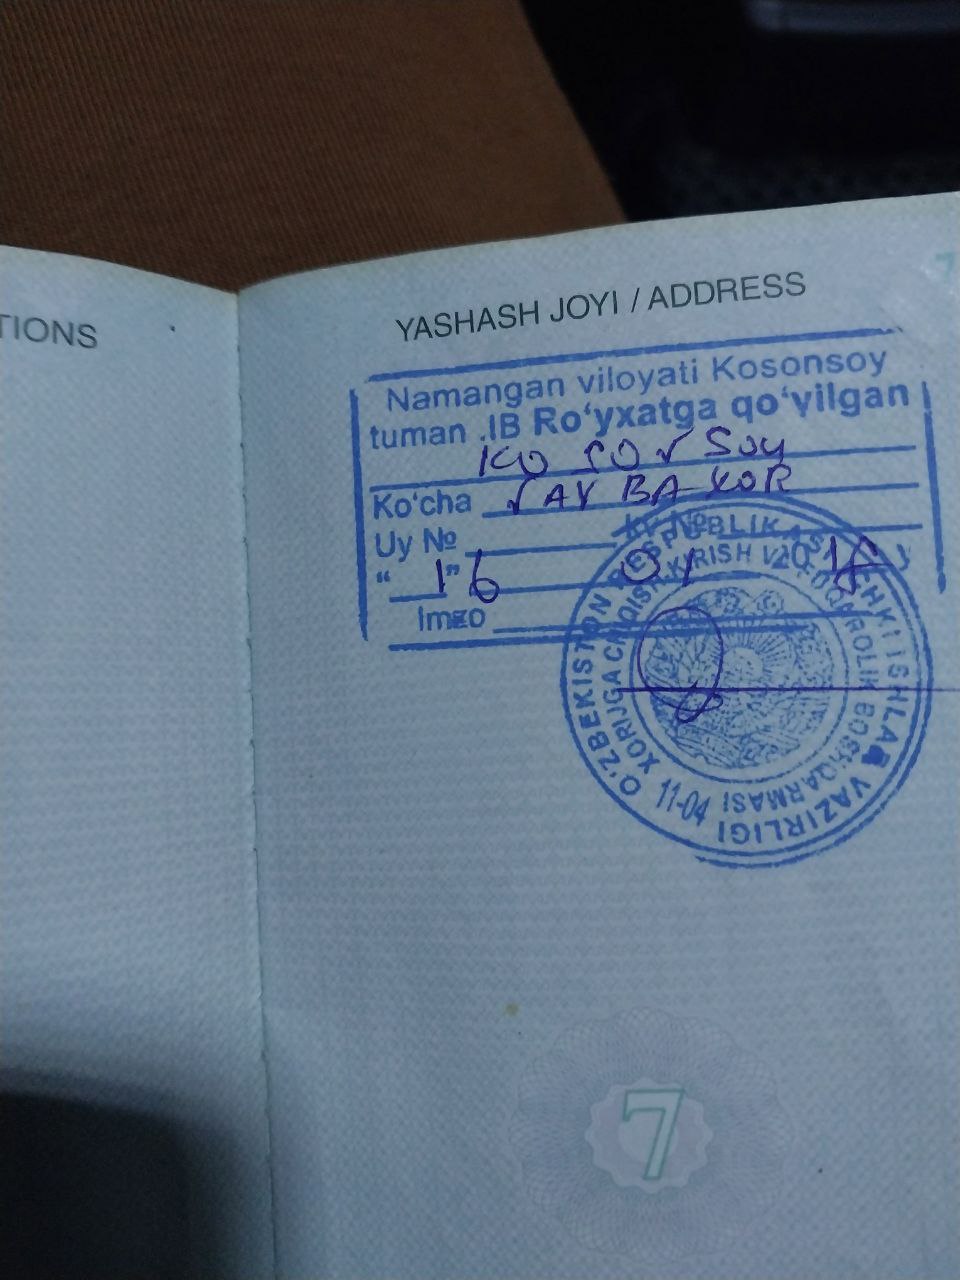 TIONS
7
YASHASH JOYI / ADDRESS
Namangan viloyati Kosonsoy
tuman .IB Ro‘yxatga qo‘yilgan
KOSONSOY
Ko‘cha NAVBAXOR
Uy № kv №
“16” 01 201
Imzo
O‘ZBEKISTON RESPUBLIKASI ICHKI ISHLAR VAZIRLIGI
XORIJGA CHIQISH, KIRISH VA FUQAROLIK BOSHQARMASI
11-04
7